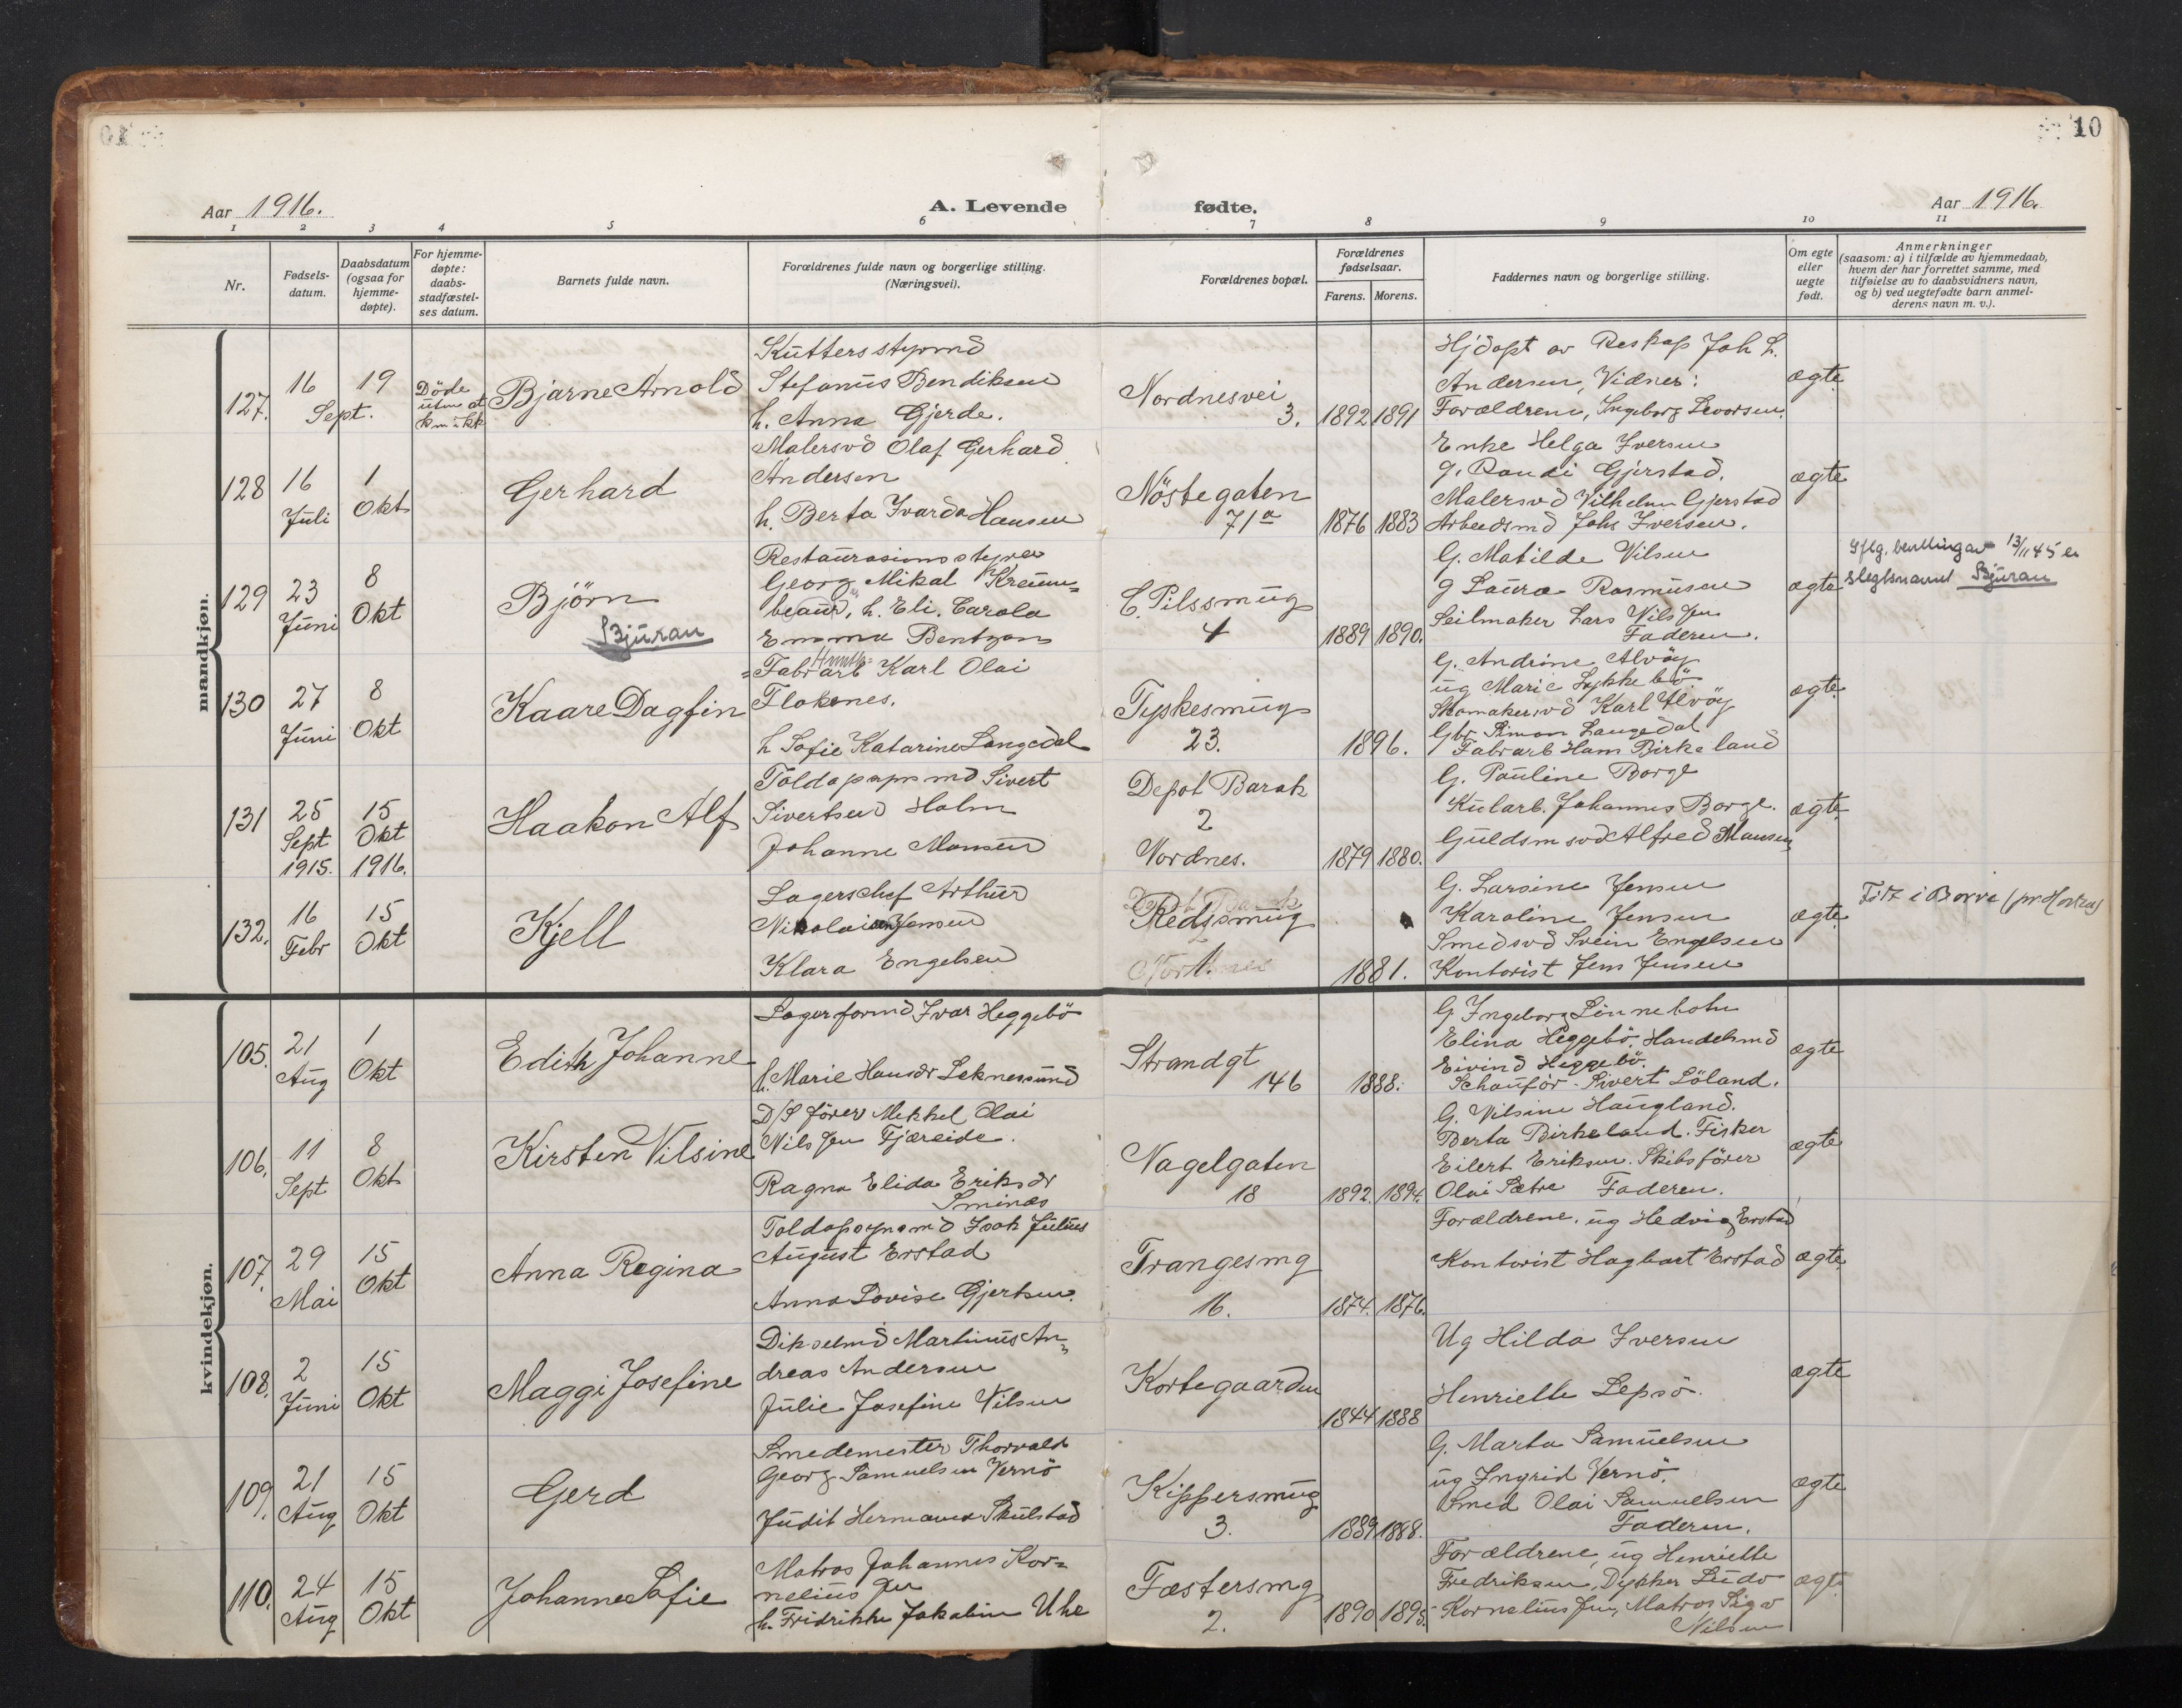 10
Aar 1916.
A. Levende fødte.
Aar 1916.
1 2 3 4 5 6 7 8 9 10 11
Nr.
Fødsels-
datum.
Daabsdatum
(ogsaa for
hjemme-
døpte).
For hjemme-
døpte:
daabs-
stadfæstel-
ses datum.
Barnets fulde navn.
Forældrenes fulde navn og borgerlige stilling.
(Næringsvei).
Forældrenes bopæl.
Forældrenes
fødselsaar.
Farens. Morens.
Faddernes navn og borgerlige stilling.
Om egte
eller
uegte
født.
Anmerkninger
(saasom: a) i tilfælde av hjemmedaab,
hvem der har forrettet samme, med
tilføielse av to daabsvidners navn,
og b) ved uegtefødte barn anmel-
derens navn m. v.).
mandkjøn.
127.
16 19
Sept.
Døde
Bjarne Arnold
Kutters styrmd
Stefanus Bendiksen
h. Anna Gjerde.
Nordnesvei
3.
1892 1891
Hjdøpt av Reskap Joh L.
Andersen, Vidner:
Forældrene, Ingeborg Sevorsen.
ægte
128
16
Juli
1
Okt
Gerhard
Malersvd Olaf Gerhard
Andersen
h. Berta Ivarda Hansen
Nöstegaten
71a
1876 1883
Enke Helga Iversen
g. Randi Gjerstad.
Malersvd Vilhelm Gjerstad
Arbeidsmd Johs Iversen.
ægte
129
23
Juni
8
Okt
Björn
Bjuran
Restaurasionsstyrer
Georg Mikal Kreum=
beaur, h. Eli. Carola
Emma Bentzon
C. Pilssmug
4
1889 1890.
G. Matilde Nilsen
g Laura Rasmusen
Seilmaker Lars Nilssen
Faderen.
ægte
Iflg. bevilling av 13/11 45 er
slegtsnavnet Bjuran
130
27
Juni
8
Okt
Kaare Dagfin
Fabrarb Karl Olai
Flokenes.
h Sofie Katarine Langedal
Tyskesmug
23.
1896.
G. Andrine Alvöy
ug Marie Lykkebö
Skomakersvd Karl Alvöy
Gbr Simon Langedal
Fabrarb Hans Birkeland
ægte
131
25
Sept
1915.
15
Okt
1916.
Haakon Alf
Toldopsynsmd Sivert
Sivertsen Holm
Johanne Monsen
Depot Barak
2
Nordnes.
1879 1880.
G. Pauline Borge
Kularb. Johannes Borge.
Guldsmsvd Alfred Mansen
ægte
132.
16
Febr
15
Okt
Kjell
Lagerschef Arthur
Nikolaisen Jensen
Klara Engelsen
Redssmug
1.
1881.
G. Larsine Jensen
Karoline Jensen
Smedsvd Svein Engelsen
Kontorist Jens Jensen
ægte
Födt i Borre (pr Horten)
kvindekjøn.
105.
21
Aug
1
Okt
Edith Johanne
Lagerformd Ivar Heggebö
h. Marie Hansdr Leknessund
Strandgt
146
1888.
G Ingeborg Linnebotn
Elina Heggebö. Handelsmd
Eivind Heggebö.
Schauför. Sivert Löland.
ægte
106.
11
Sept
8
Okt
Kirsten Nilsine
D/S förer Mekkel Olai
Nilssen Fjæreide.
Ragna Elida Eriksdr
Sminas
Nagelgaten
18
1892. 1894.
G. Nilsine Haugland.
Berta Birkeland. Fisker
Eilert Eriksen. Skibsförer
Olai Sætre Faderen.
ægte
107.
29
Mai
15
Okt
Anna Regina
Toldopsynsmd Isak Julius
August Erstad
Anna Lovise Gjertsen.
Trangesmg
16.
1874. 1876.
Forældrene. ug Hedvig Erstad
Kontorist Hagbart Erstad
ægte
108.
2
Juni
15
Okt
Maggi Josefine
Dikselmd Martinus An=
dreas Andersen
Julie Josefine Nilsen
Kortegaarden
1844 1888
Ug Hilda Iversen
Henriette Lepsö.
ægte
109.
21
Aug
15
Okt
Gerd
Smedemester Thorvald
Georg Samuelsen Vernö
Judit Hermana Skulstad
Kippersmug
3.
1889 1888.
G. Marta Samuelsen
ug Ingrid Vernö.
Smed Olai Samuelsen
Faderen.
ægte
110.
24
Aug
15
Okt
Johanne Sofie
Matros Johannes Kor=
nelius sen
h. Fridrikke Jakobine Uhe
Fæstersmg
2.
1890 1895.
Forældrene, ug Henriette
Fredriksen, Dykker Ludv
Korneliussen, Matros Sigv
Nilsen
ægte